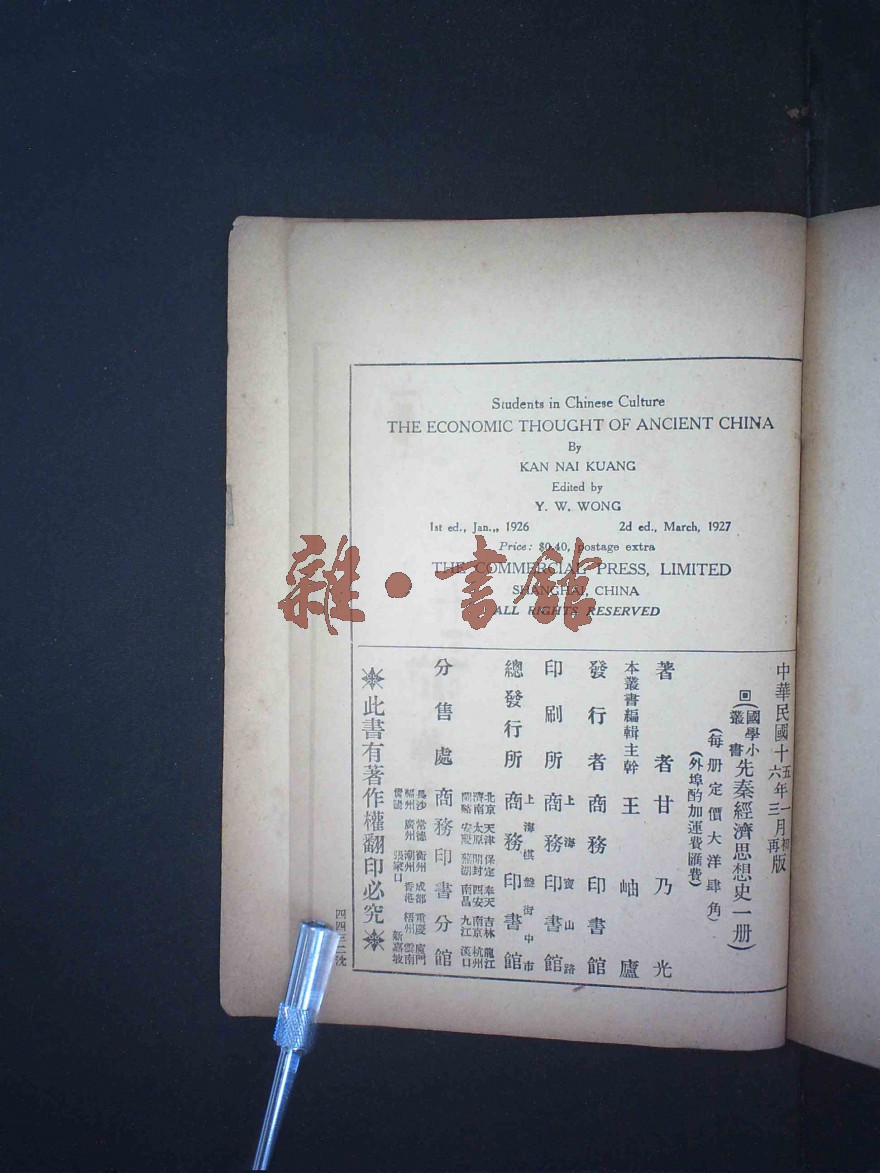 Students in Chinese Culture
THE ECONOMIC THOUGHT OF ANCIENT CHINA
By
KAN NAI KUANG
Edited by
Y. W. WONG
1st ed., Jan.,, 1926 2d ed., March, 1927
Price: $0.40, postage extra
THE COMMERCIAL PRESS, LIMITED
SHANGHAI, CHINA
ALL RIGHTS RESERVED
雜·書館
中華民國十五年一月初版
六年三月再
國學小叢書
先秦經濟思想史一册
(每册定價大洋肆角)
(外埠酌加運費匯費)
著者 甘乃光
本叢書編輯主幹 王岫廬
發行者 商務印書館
印刷所 上海寶山路 商務印書館
總發行所 上海棋盤街中市 商務印書館
分售處 商務印書分館
北京 天津 保定 奉天 吉林 龍江
濟南 太原 開封 西安 南京 杭州
蘭谿 安慶 蕪湖 南昌 九江 漢口
長沙 常德 衡州 成都 重慶 廈門
福州 廣州 潮州 香港 梧州 雲南
張家口 新嘉坡
此書有著作權翻印必究